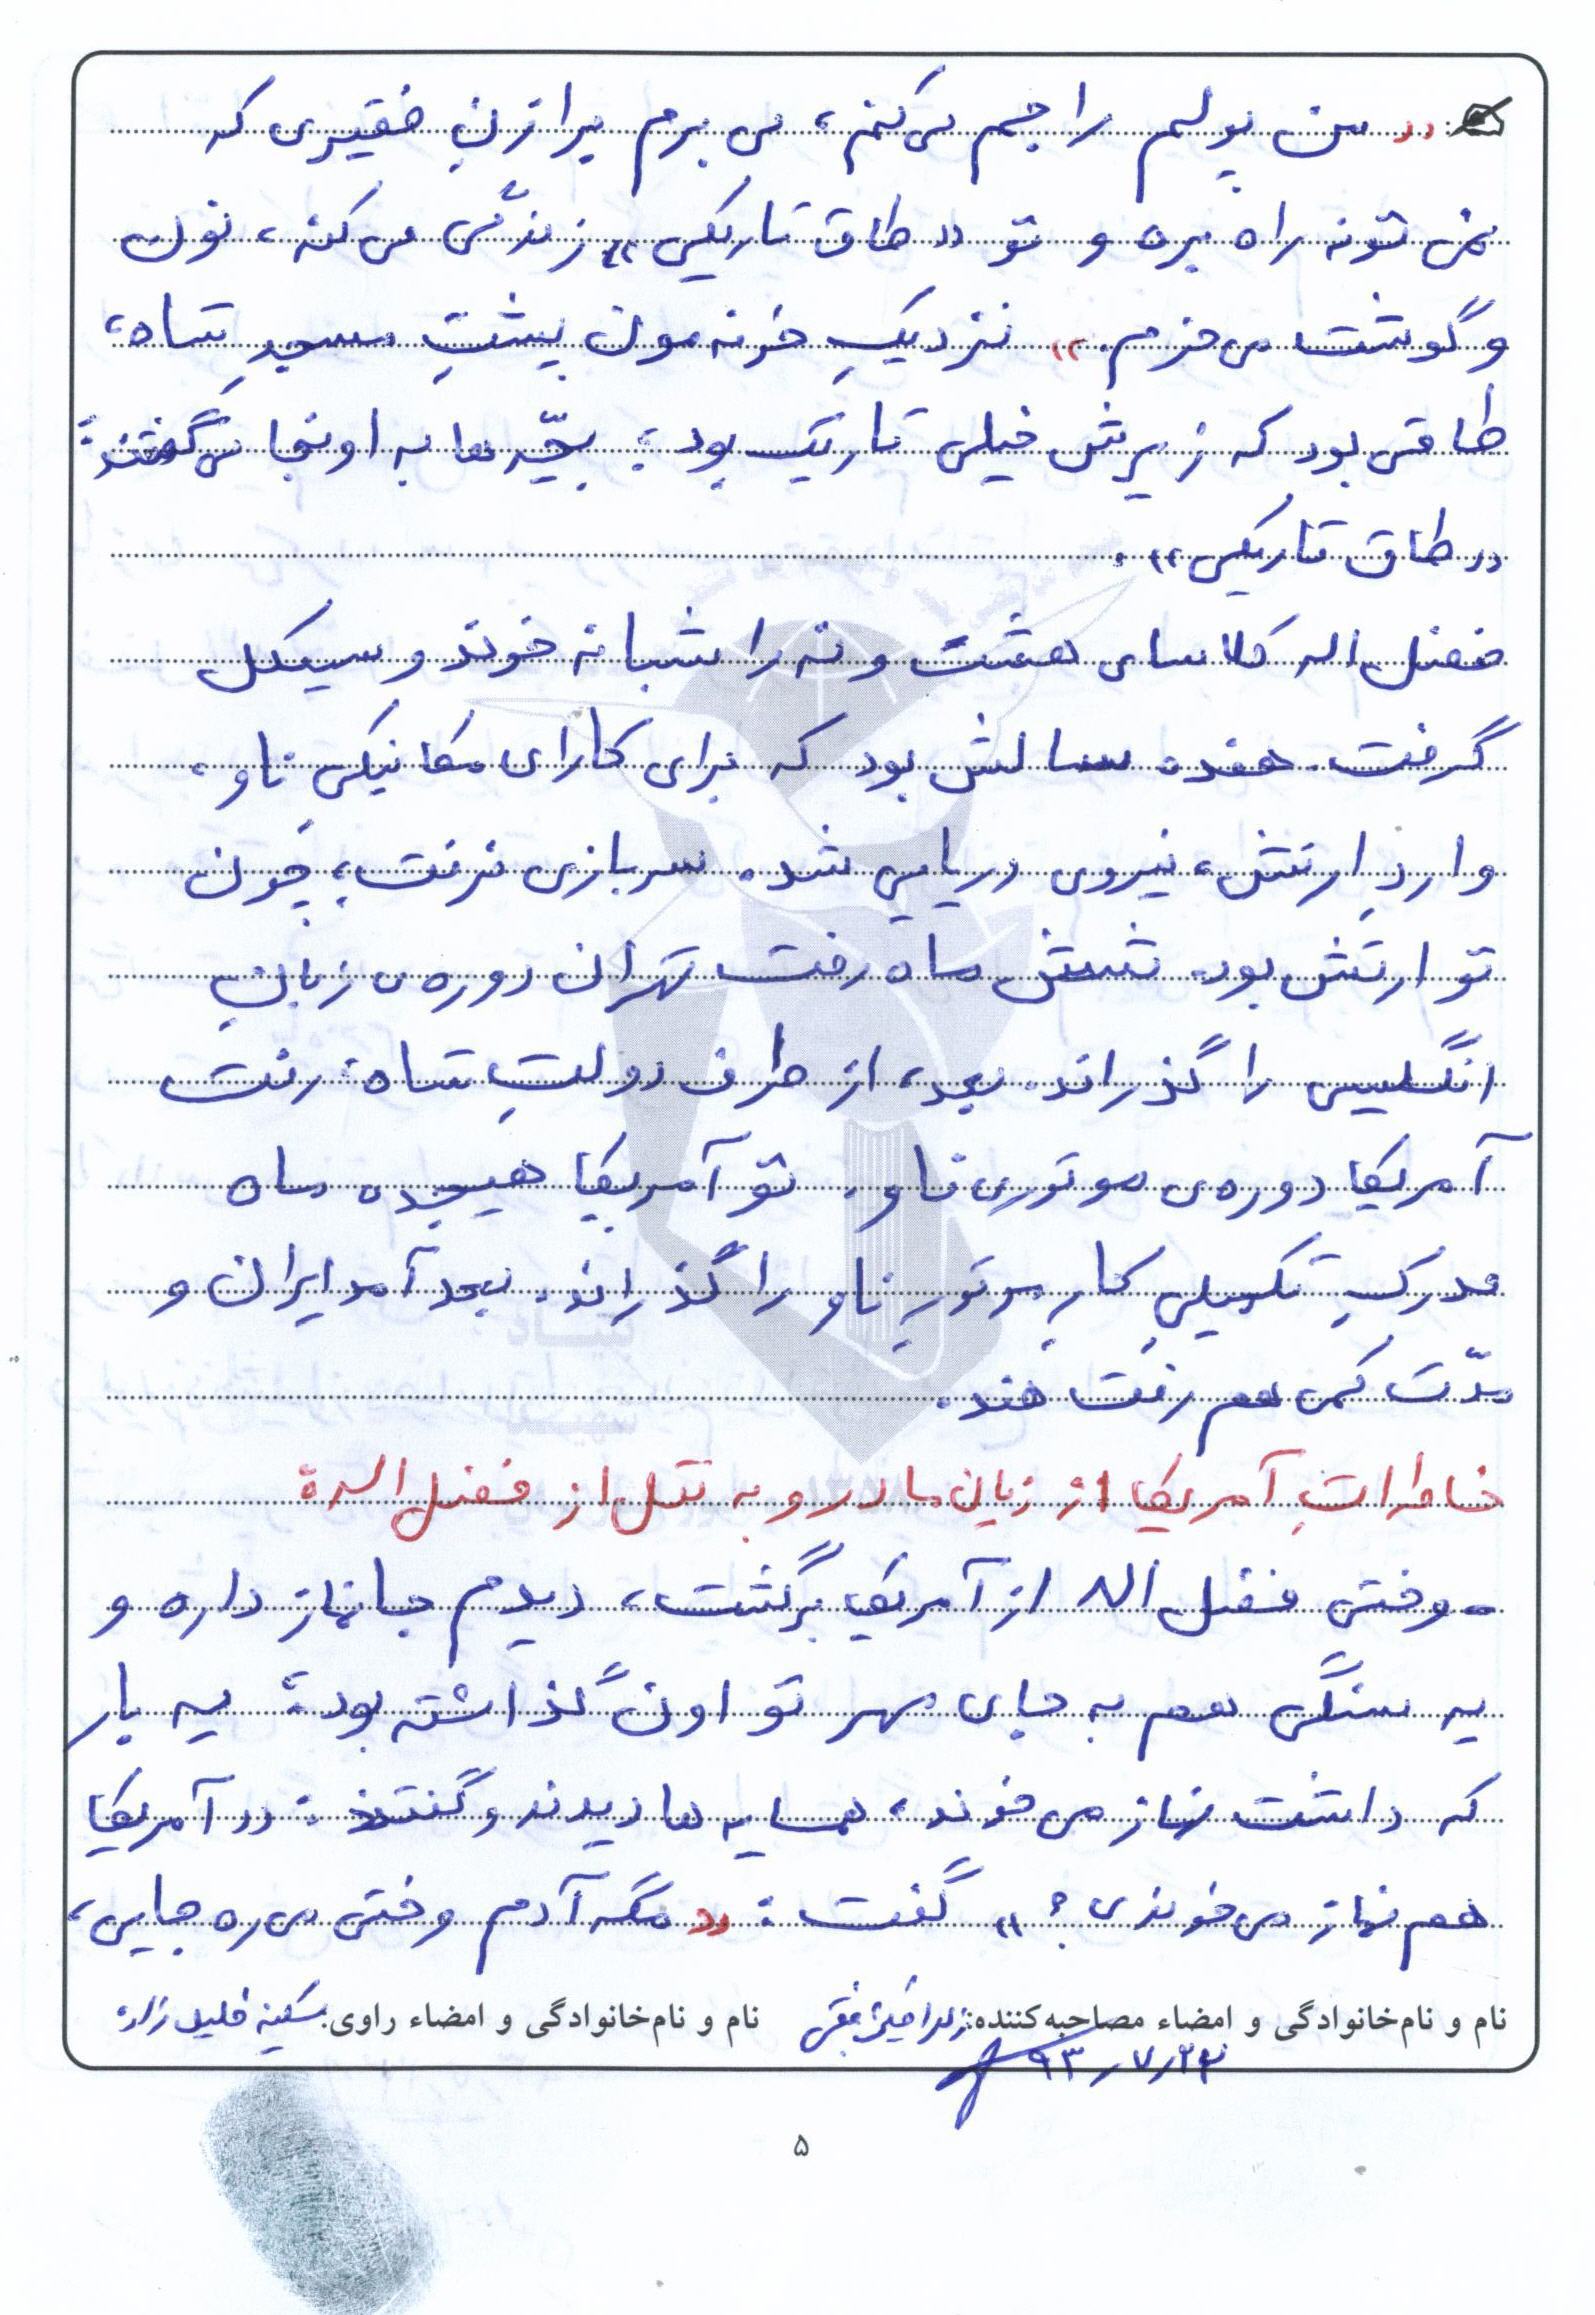 «من پولم را جمع می‌کنم، می برم برا زنِ فقیری که
نمی تونه راه بره و تو «طاق تاریکی» زندگی می‌کنه، نون
و گوشت می‌خرم.» نزدیکِ خونه‌مون پشتِ مسجدِ شاه،
طاقی بود که زیرش خیلی تاریک بود؛ بچّه‌ها به اونجا می‌گفتند:
«طاق تاریکی».
فضل‌اله کلاسای هشت و نه را شبانه خوند و سیکل
گرفت. هفده سالش بود که برای کارای مکانیکیِ ناو،
واردِ ارتش، نیروی دریایی شد. سربازی نرفت؛ چون
تو ارتش بود. شش ماه رفت تهران دوره‌ی زبانِ
انگلیسی را گذراند. بعد، از طرف دولتِ شاه، رفت
آمریکا دوره‌ی موتوری ناو. تو آمریکا هیجده ماه
مدرکِ تکمیلیِ کارِ موتورِ ناو را گذراند. بعد آمد ایران و
مدّت کمی هم رفت هند.
خاطراتِ آمریکا از زبان مادر و به نقل از فضل‌اله:
- وقتی فضل‌اله از آمریکا برگشت، دیدم جانماز داره و
یه سنگی هم به جای مهر تو اون گذاشته بود؛ یه بار
که داشت نماز می‌خوند، همسایه‌ها دیدند و گفتند: «آمریکا
هم نماز می‌خوندی؟» گفت: «مگه آدم وقتی می‌ره جایی،
نام و نام‌خانوادگی و امضاء مصاحبه‌کننده: زهرا نام و نام‌خانوادگی و امضاء راوی: سکینه خلیل‌زاده
۹۳٫۷٫۲۲
۵